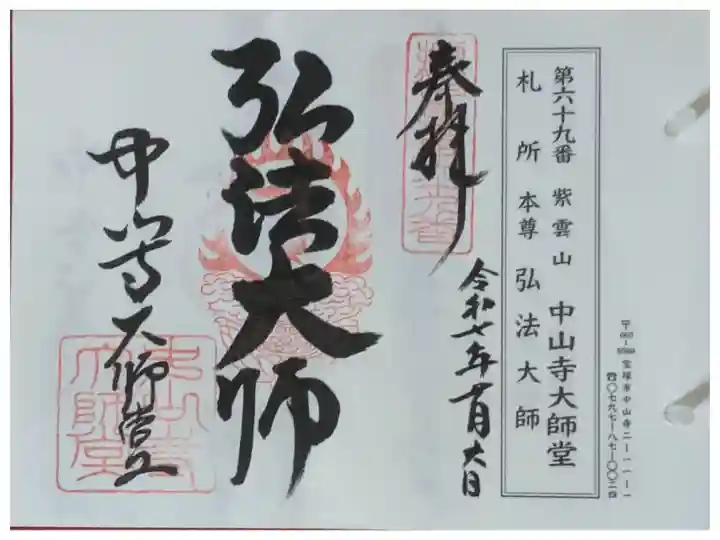 〒665-8588 宝塚市中山寺二ー一一ー一
☎〇七九七ー八七ー〇〇二四
第六十九番 紫雲山 中山寺大師堂
札所本尊 弘法大師
奉拝
令和七年
弘法大師
中山寺大師堂
中山寺
大師堂